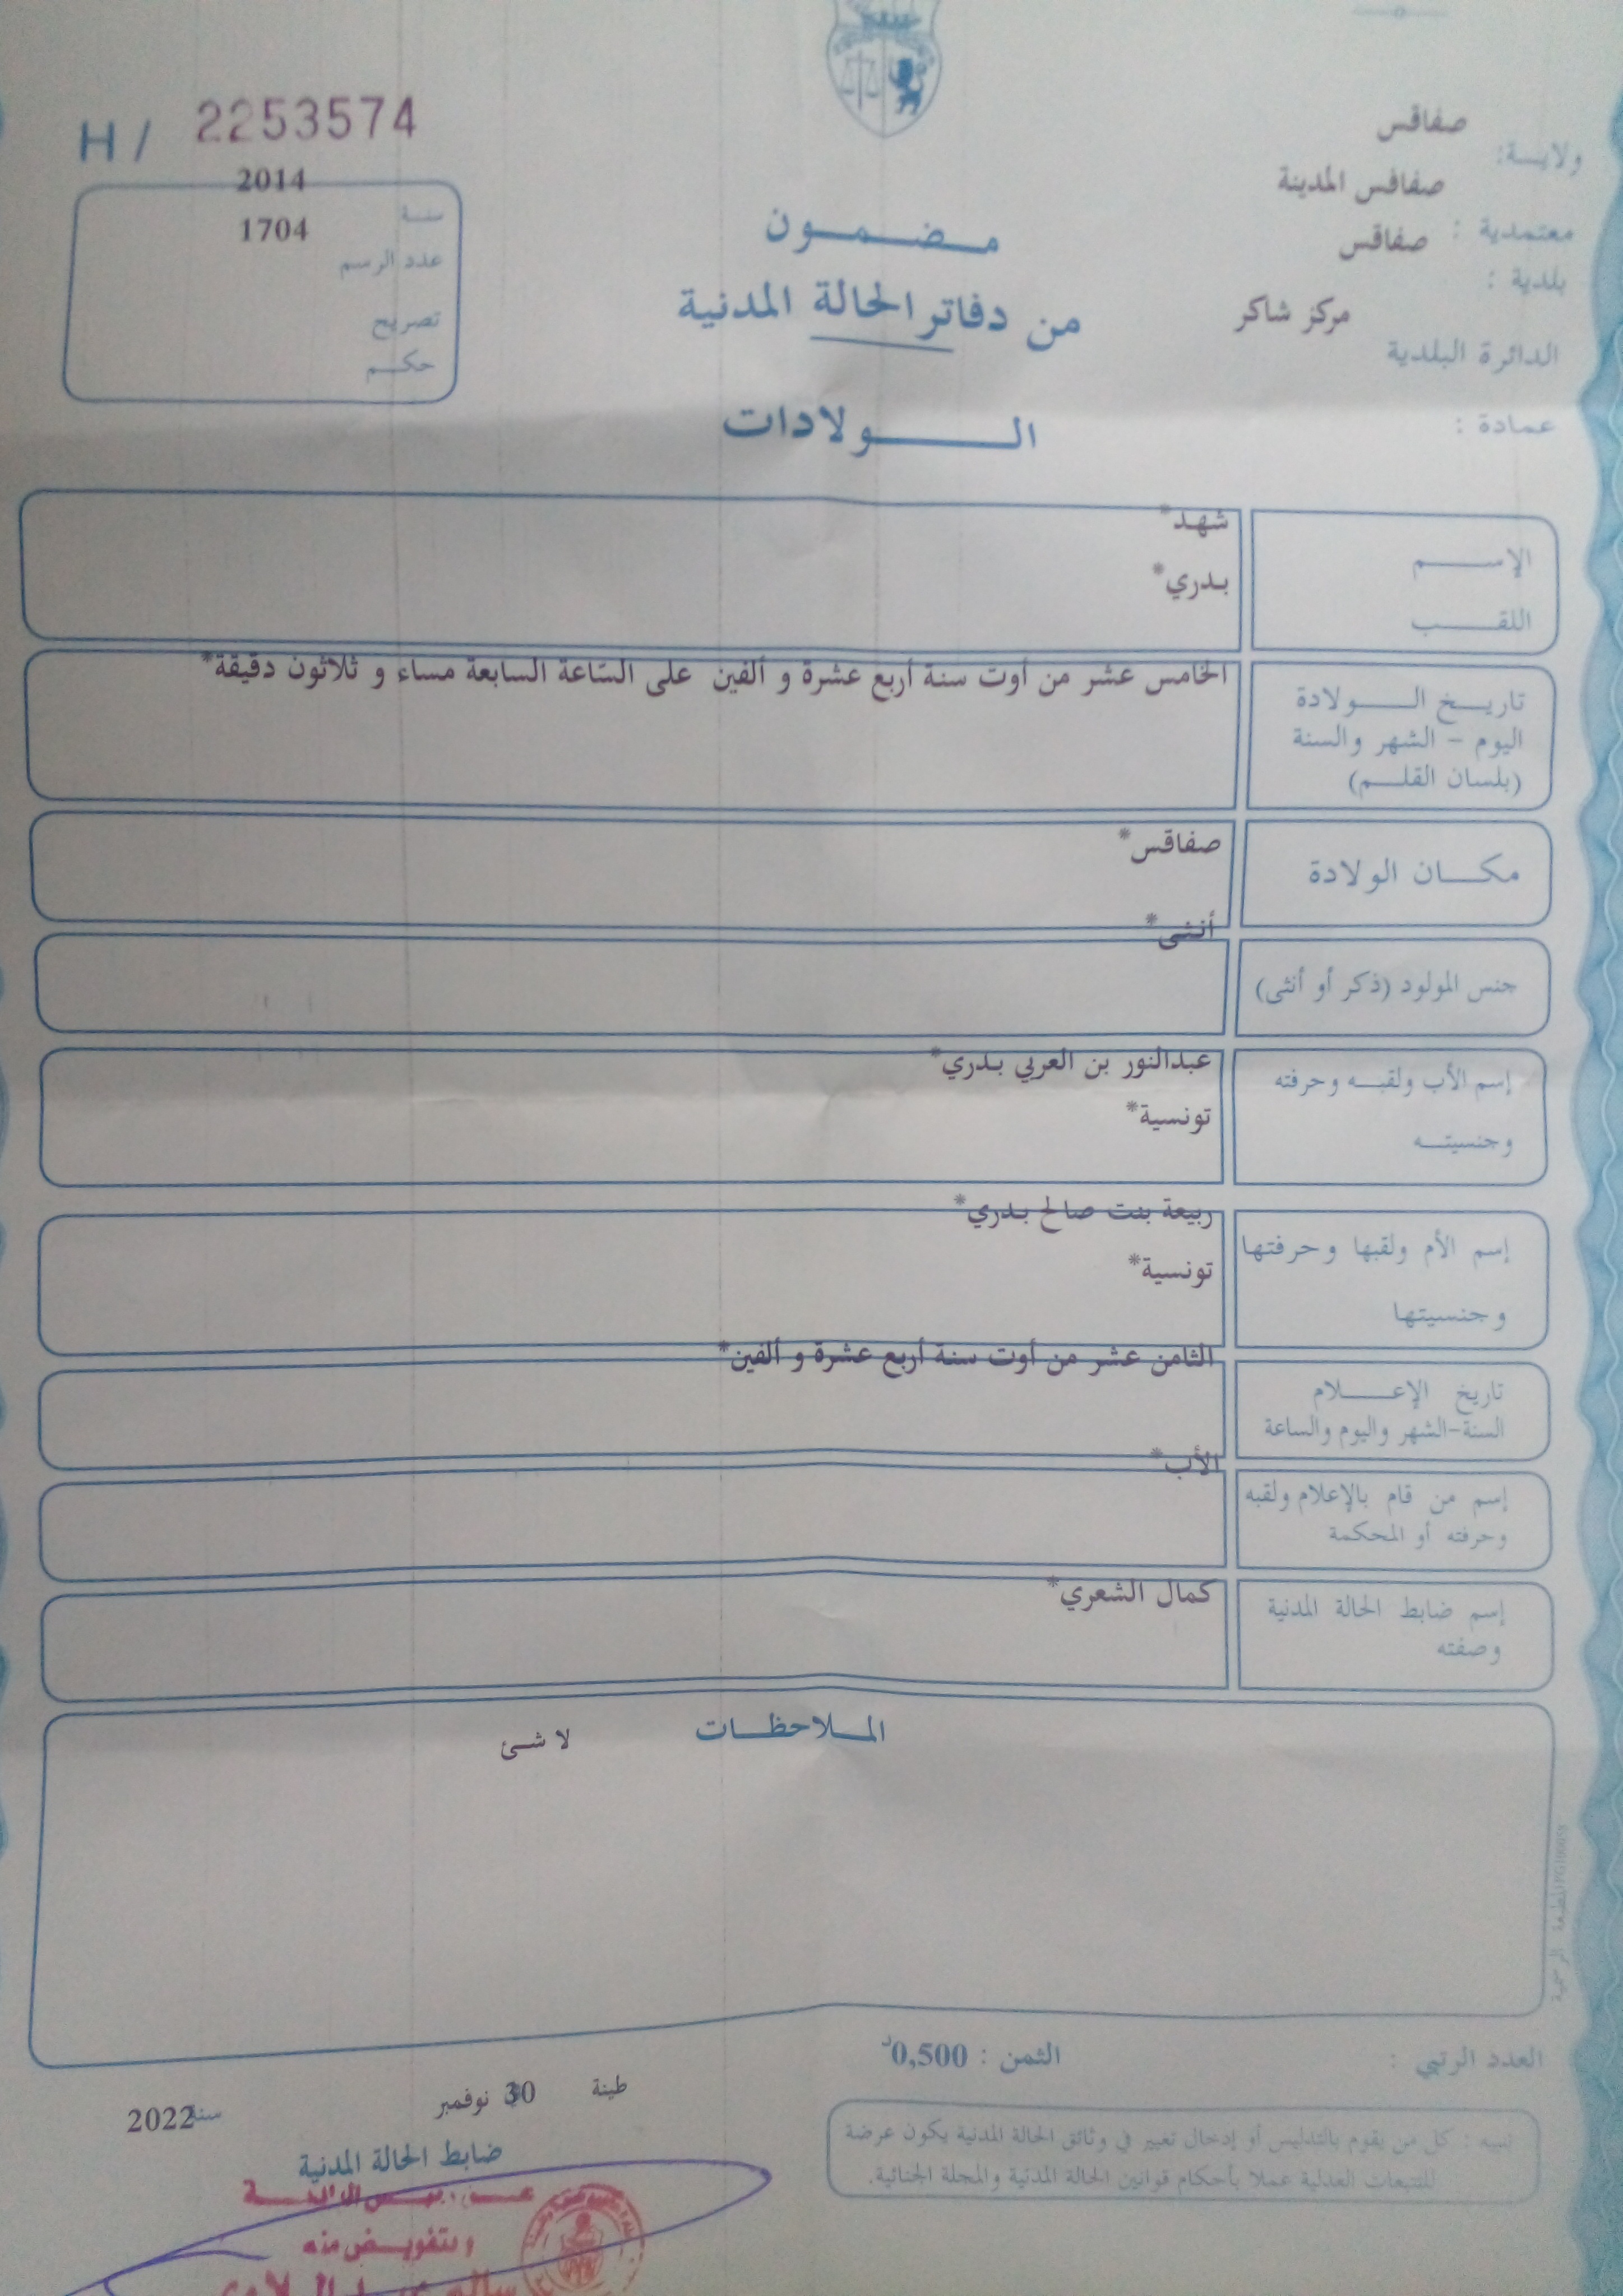 H / 2253574
ولايـــة: صفاقس
معتمدية : صفاقس المدينة
بلدية : صفاقس
الدائرة البلدية مركز شاكر
عمادة :
سنــة 2014
عدد الرسم 1704
تصريح
حكـــم
مـــضـــمـــون
من دفاتر الحالة المدنية
الـــــولادات
الإســــــم شهد*
اللقـــــب بدري*
تاريـــخ الـــــولادة الخامس عشر من أوت سنة أربع عشرة و ألفين على السّاعة السابعة مساء و ثلاثون دقيقة*
اليوم - الشهر والسنة
(بلسان القلـــم)
مكـــان الولادة صفاقس*
جنس المولود (ذكر أو أنثى) أنثى*
إسم الأب ولقبـــه وحرفته عبدالنور بن العربي بدري*
وجنسيتـــه تونسية*
إسم الأم ولقبها وحرفتها ربيعة بنت صالح بدري*
وجنسيتها تونسية*
تاريخ الإعـــــلام الثامن عشر من أوت سنة أربع عشرة و ألفين*
السنة-الشهر واليوم والساعة
إسم من قام بالإعلام ولقبه الأب*
وحرفته أو المحكمة
إسم ضابط الحالة المدنية كمال الشعري*
وصفته
المـــلاحظـــات لا شئ
المطبعة الرسمية
العدد الرتبي :
الثمن : 0,500د
طينة 30 نوفمبر سنة 2022
ضابط الحالة المدنية
تنبيه : كل من يقوم بالتدليس أو إدخال تغيير في وثائق الحالة المدنية يكون عرضة
للتتبعات العدلية عملا بأحكام قوانين الحالة المدنية والمجلة الجنائية.
وبتفويـــض منه